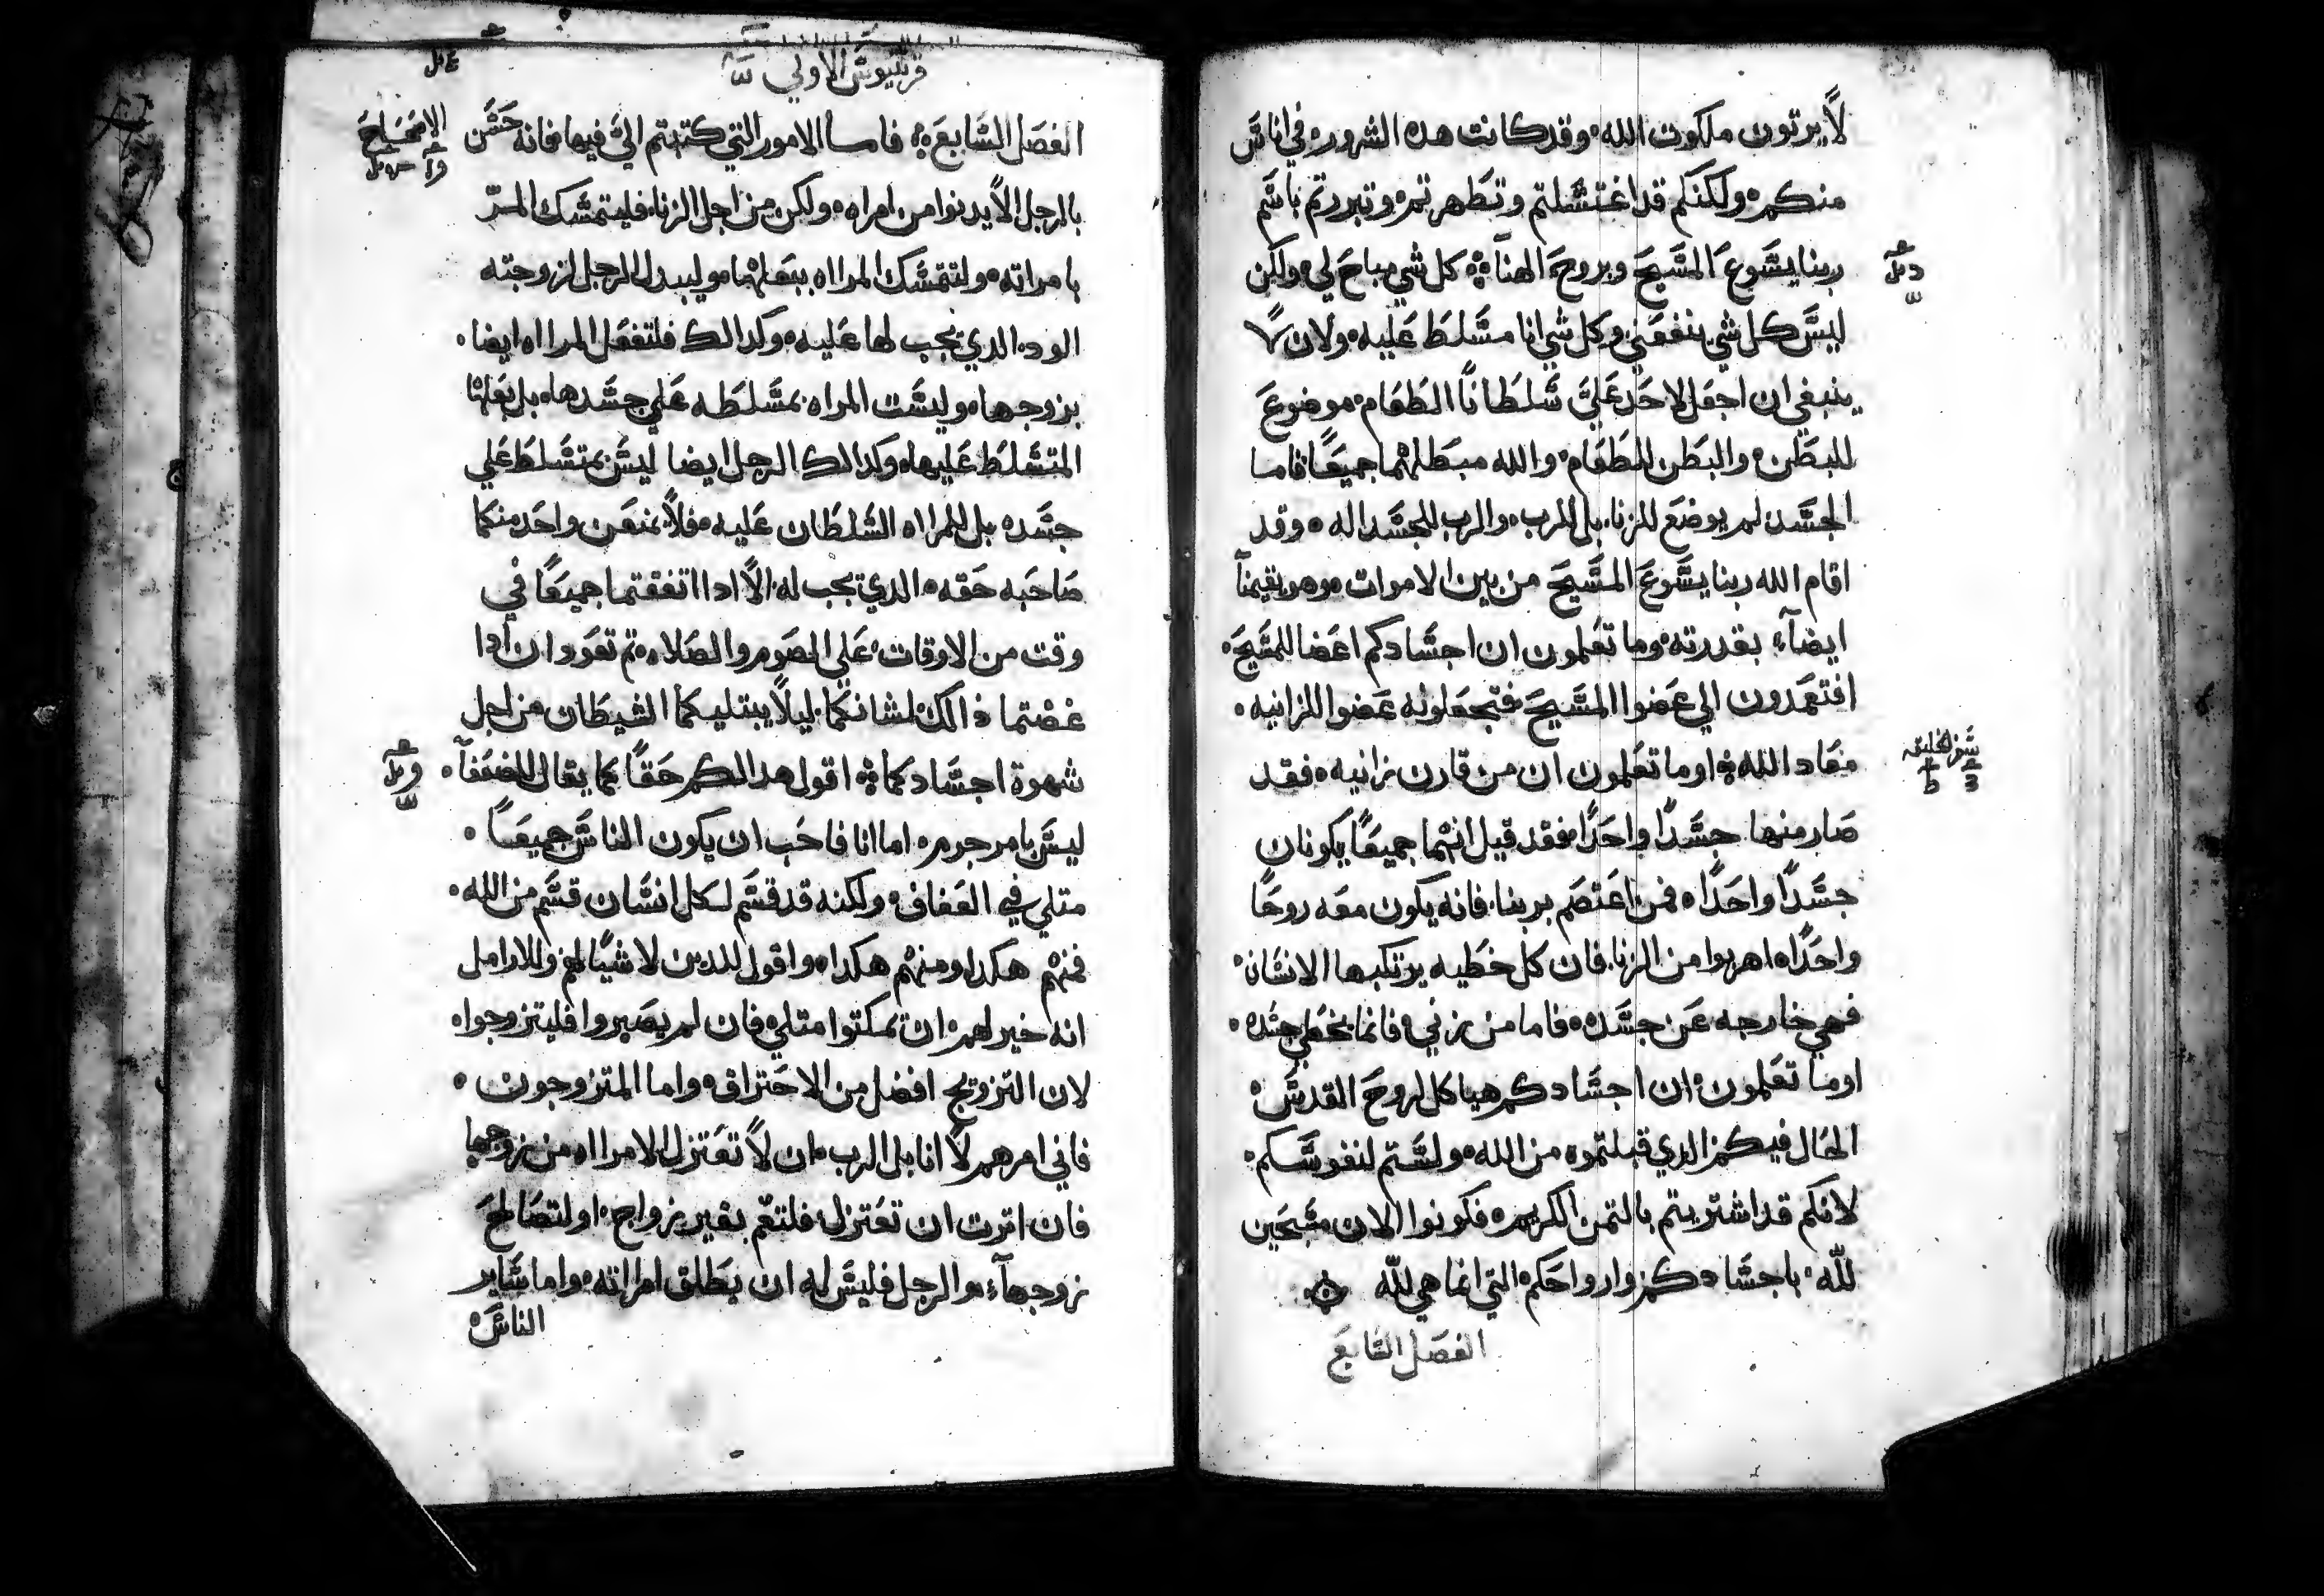 لا يرتون ملكوت الله وقد كانت هده الشرور في اناس
منكم ولكنكم قد اغتسلتم وتطهرتم وتبررتم باسم
ربنا يسوع المسيح وبروح الهنا كل شي مباح لي ولكن
ليس كل شي ينفعني وكل شي انا مسلط عليه ولان لا
ينبغي ان اجعل لاحد علي سلطانا الطعام موضوع
للبطن والبطن للطعام والله مبطلهما جميعا فاما
الجسد لم يوضع للزنا بل للرب والرب للجسد اله وقد
اقام الله ربنا يسوع المسيح من بين الاموات وهو يقيمنا
ايضاء بقدرته وما تعلمون ان اجسادكم اعضا للمسيح
افتعمدون الي عضوا المسيح فتجعلونه عضوا للزانيه
معاد الله اوما تعلمون ان من قارن زانيه فقد
صار منها جسدا واحدا فقد قيل انهما جميعا يكونان
جسدا واحدا فمن اعتصم بربنا فانه يكون معه روحا
واحدا اهربوا من الزنا فان كل خطيه يرتكبها الانسان
فهي خارجه عن جسده فاما من زني فانما يخطي جسده
اوما تعلمون ان اجسادكم هياكل لروح القدس
الحال فيكم الدي قبلتموه من الله ولستم لنفوسكم
لانكم قد اشتريتم بالتمن الكريم فكونوا الان مسبحين
لله باجسادكم وارواحكم التي انما هي لله
الفصل السابع
سفر الخليقه
قرنتيوس الاولي
الفصل السابع فاما الامور التي كتبتم الي فيها فانه حسن
الاصحاح
بالرجل الا يدنوا من امراه ولكن من اجل الزنا فليتمسك المر
بامراته ولتتمسك المراه ببعلها وليبدل الرجل لزوجته
الود الدي يجب لها عليه وكدالك فلتفعل المراه ايضا
بزوجها وليست المراه بمسلطه علي جسدها بل بعلها
المتسلط عليها وكدالك الرجل ايضا ليس بمتسلط علي
جسده بل للمراه السلطان عليه فلا يمنعن واحد منكما
صاحبه حقه الدي يجب له الا ادا اتفقتما جميعا في
وقت من الاوقات علي الصوم والصلاه تم تعودان ادا
غضتما ذالك لشانكما ليلا يبتليكما الشيطان من اجل
شهوة اجسادكما اقول هدا لكم حقا كما يقال للضعفا
ليس بامر جرم اما انا فاحب ان يكون الناس جميعا
متلي في العفاف ولكنه قد قسم لكل انسان قسم من الله
فمنهم هكدا ومنهم هكدا واقول للدين لا نسا لهم وللارامل
انه خير لهم ان تمكتوا متلي فان لم يصبروا فليتزوجوا
لان التزويج افضل من الاحتراق واما المتزوجون
فاني امرهم لا انا بل الرب ان لا تعتزل الامراه من زوجها
فان اترت ان تعتزل فلتقم بغير زواج او لتصالح
زوجهاء والرجل فليس له ان يطلق امراته واما ساير
الناس